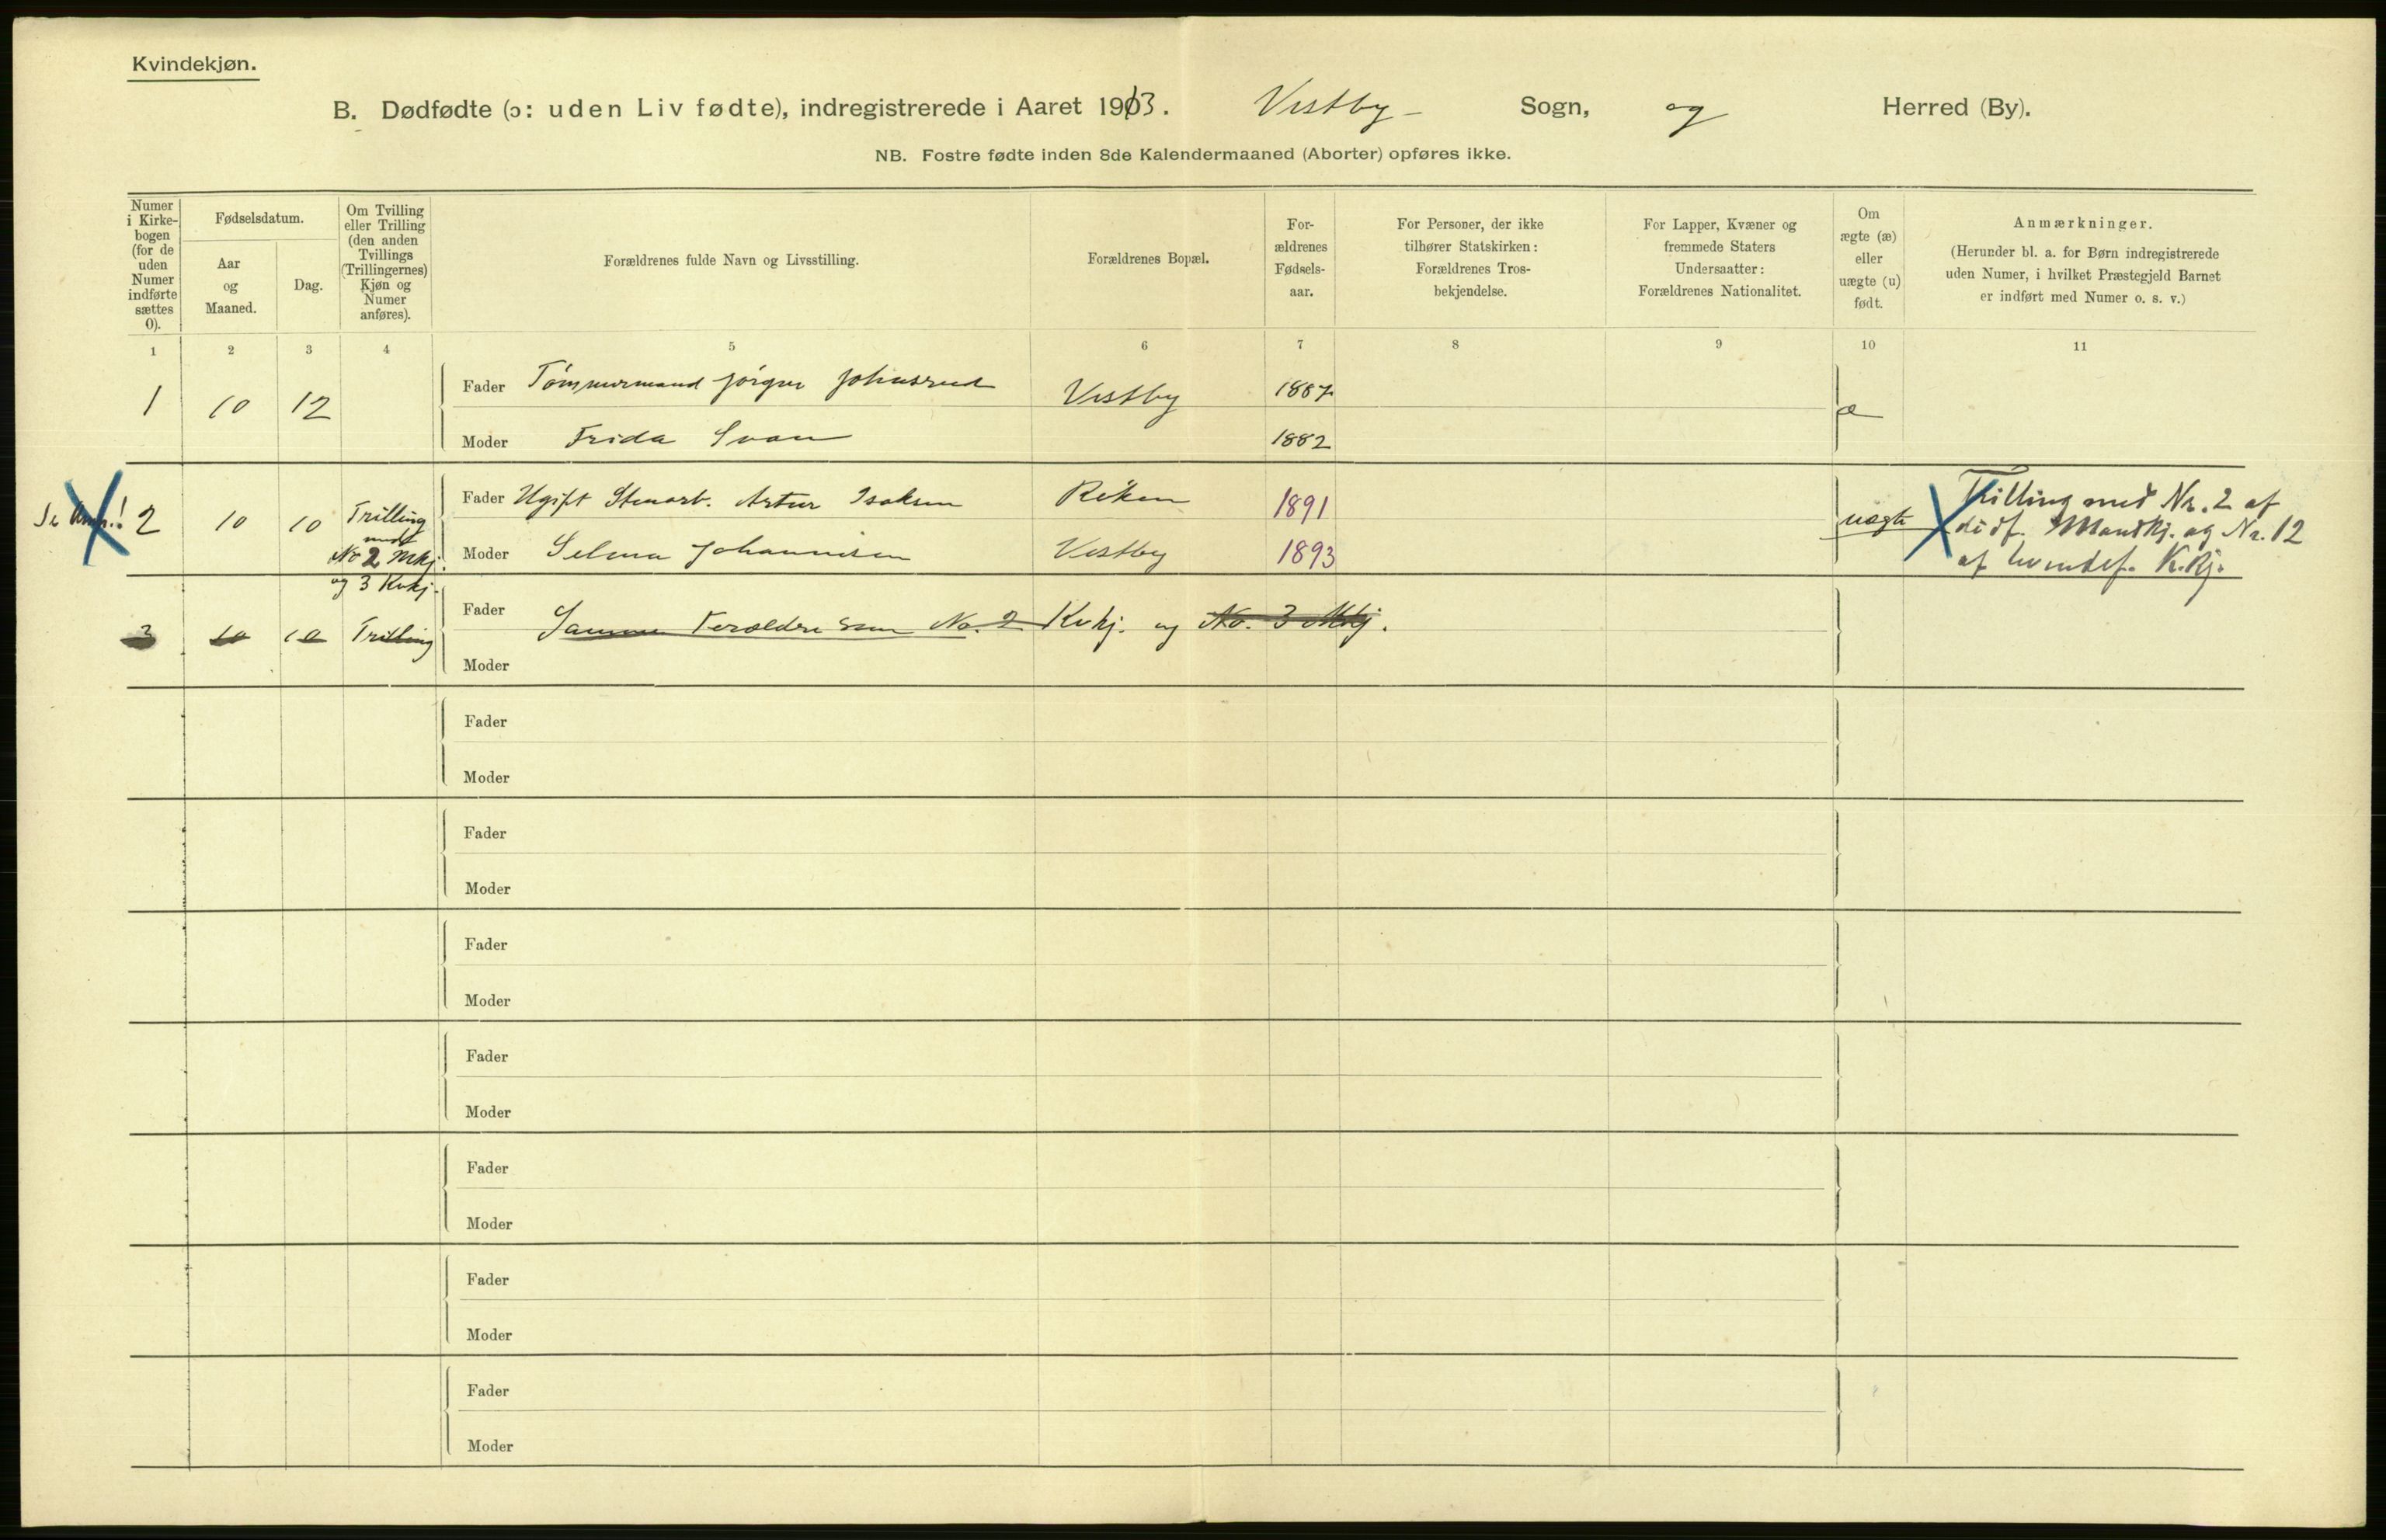 Kvindekjøn.
B. Dødfødte (ɔ: uden Liv fødte), indregistrerede i Aaret 1913. Vestby Sogn, og Herred (By).
NB. Fostre fødte inden 8de Kalendermaaned (Aborter) opføres ikke.
Numer
i Kirke-
bogen
(for de
uden
Numer
indførte
sættes
0).
Fødselsdatum.
Aar
og
Maaned.
Dag.
Om Tvilling
eller Trilling
(den anden
Tvillings
(Trillingernes)
Kjøn og
Numer
anføres).
Forældrenes fulde Navn og Livsstilling.
Forældrenes Bopæl.
For-
ældrenes
Fødsels-
aar.
For Personer, der ikke
tilhører Statskirken:
Forældrenes Tros-
bekjendelse.
For Lapper, Kvæner og
fremmede Staters
Undersaatter:
Forældrenes Nationalitet.
Om
ægte (æ)
eller
uægte (u)
født.
Anmærkninger.
(Herunder bl. a. for Børn indregistrerede
uden Numer, i hvilket Præstegjeld Barnet
er indført med Numer o. s. v.)
1 2 3 4 5 6 7 8 9 10 11
1 10 12 Fader Tømmermand Jørgen Johnsrud Vestby 1887 æ
Moder Frida Svan 1882
Se Anm.! 2 10 10 Trilling
med
No 2 Mkj.
og 3 Kvkj.
Fader Ugift Artur Isaksen Röken 1891 uægte
Moder Selma Johannesen Vestby 1893
Trilling med Nr. 2 af
dødf. Mandkj. og Nr. 12
af levendef. K.kj.
3 10 10 Trilling Fader Samme Foræeldre som No. 2 Kvkj. og No. 3 Mkj.
Moder
Fader
Moder
Fader
Moder
Fader
Moder
Fader
Moder
Fader
Moder
Fader
Moder
Fader
Moder